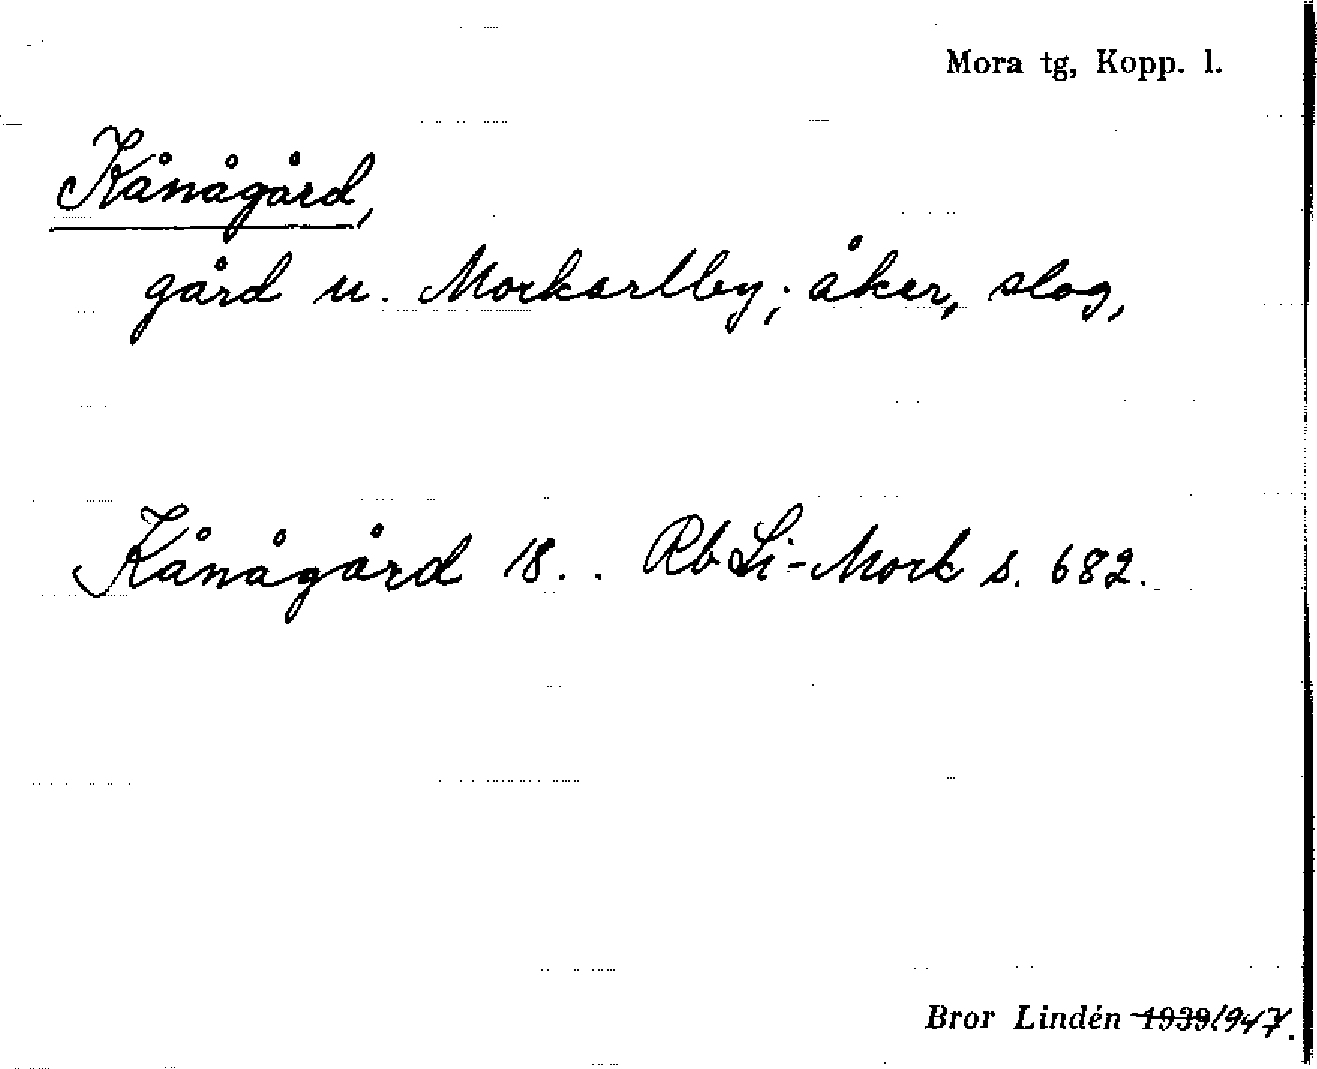 Mora tg, Kopp. l.
Kånågård,
gård u. Mockarlby; åker, slog,
Kånågård 18.. Rb Li-Mock s. 682.
Bror Lindén 1939 1947.